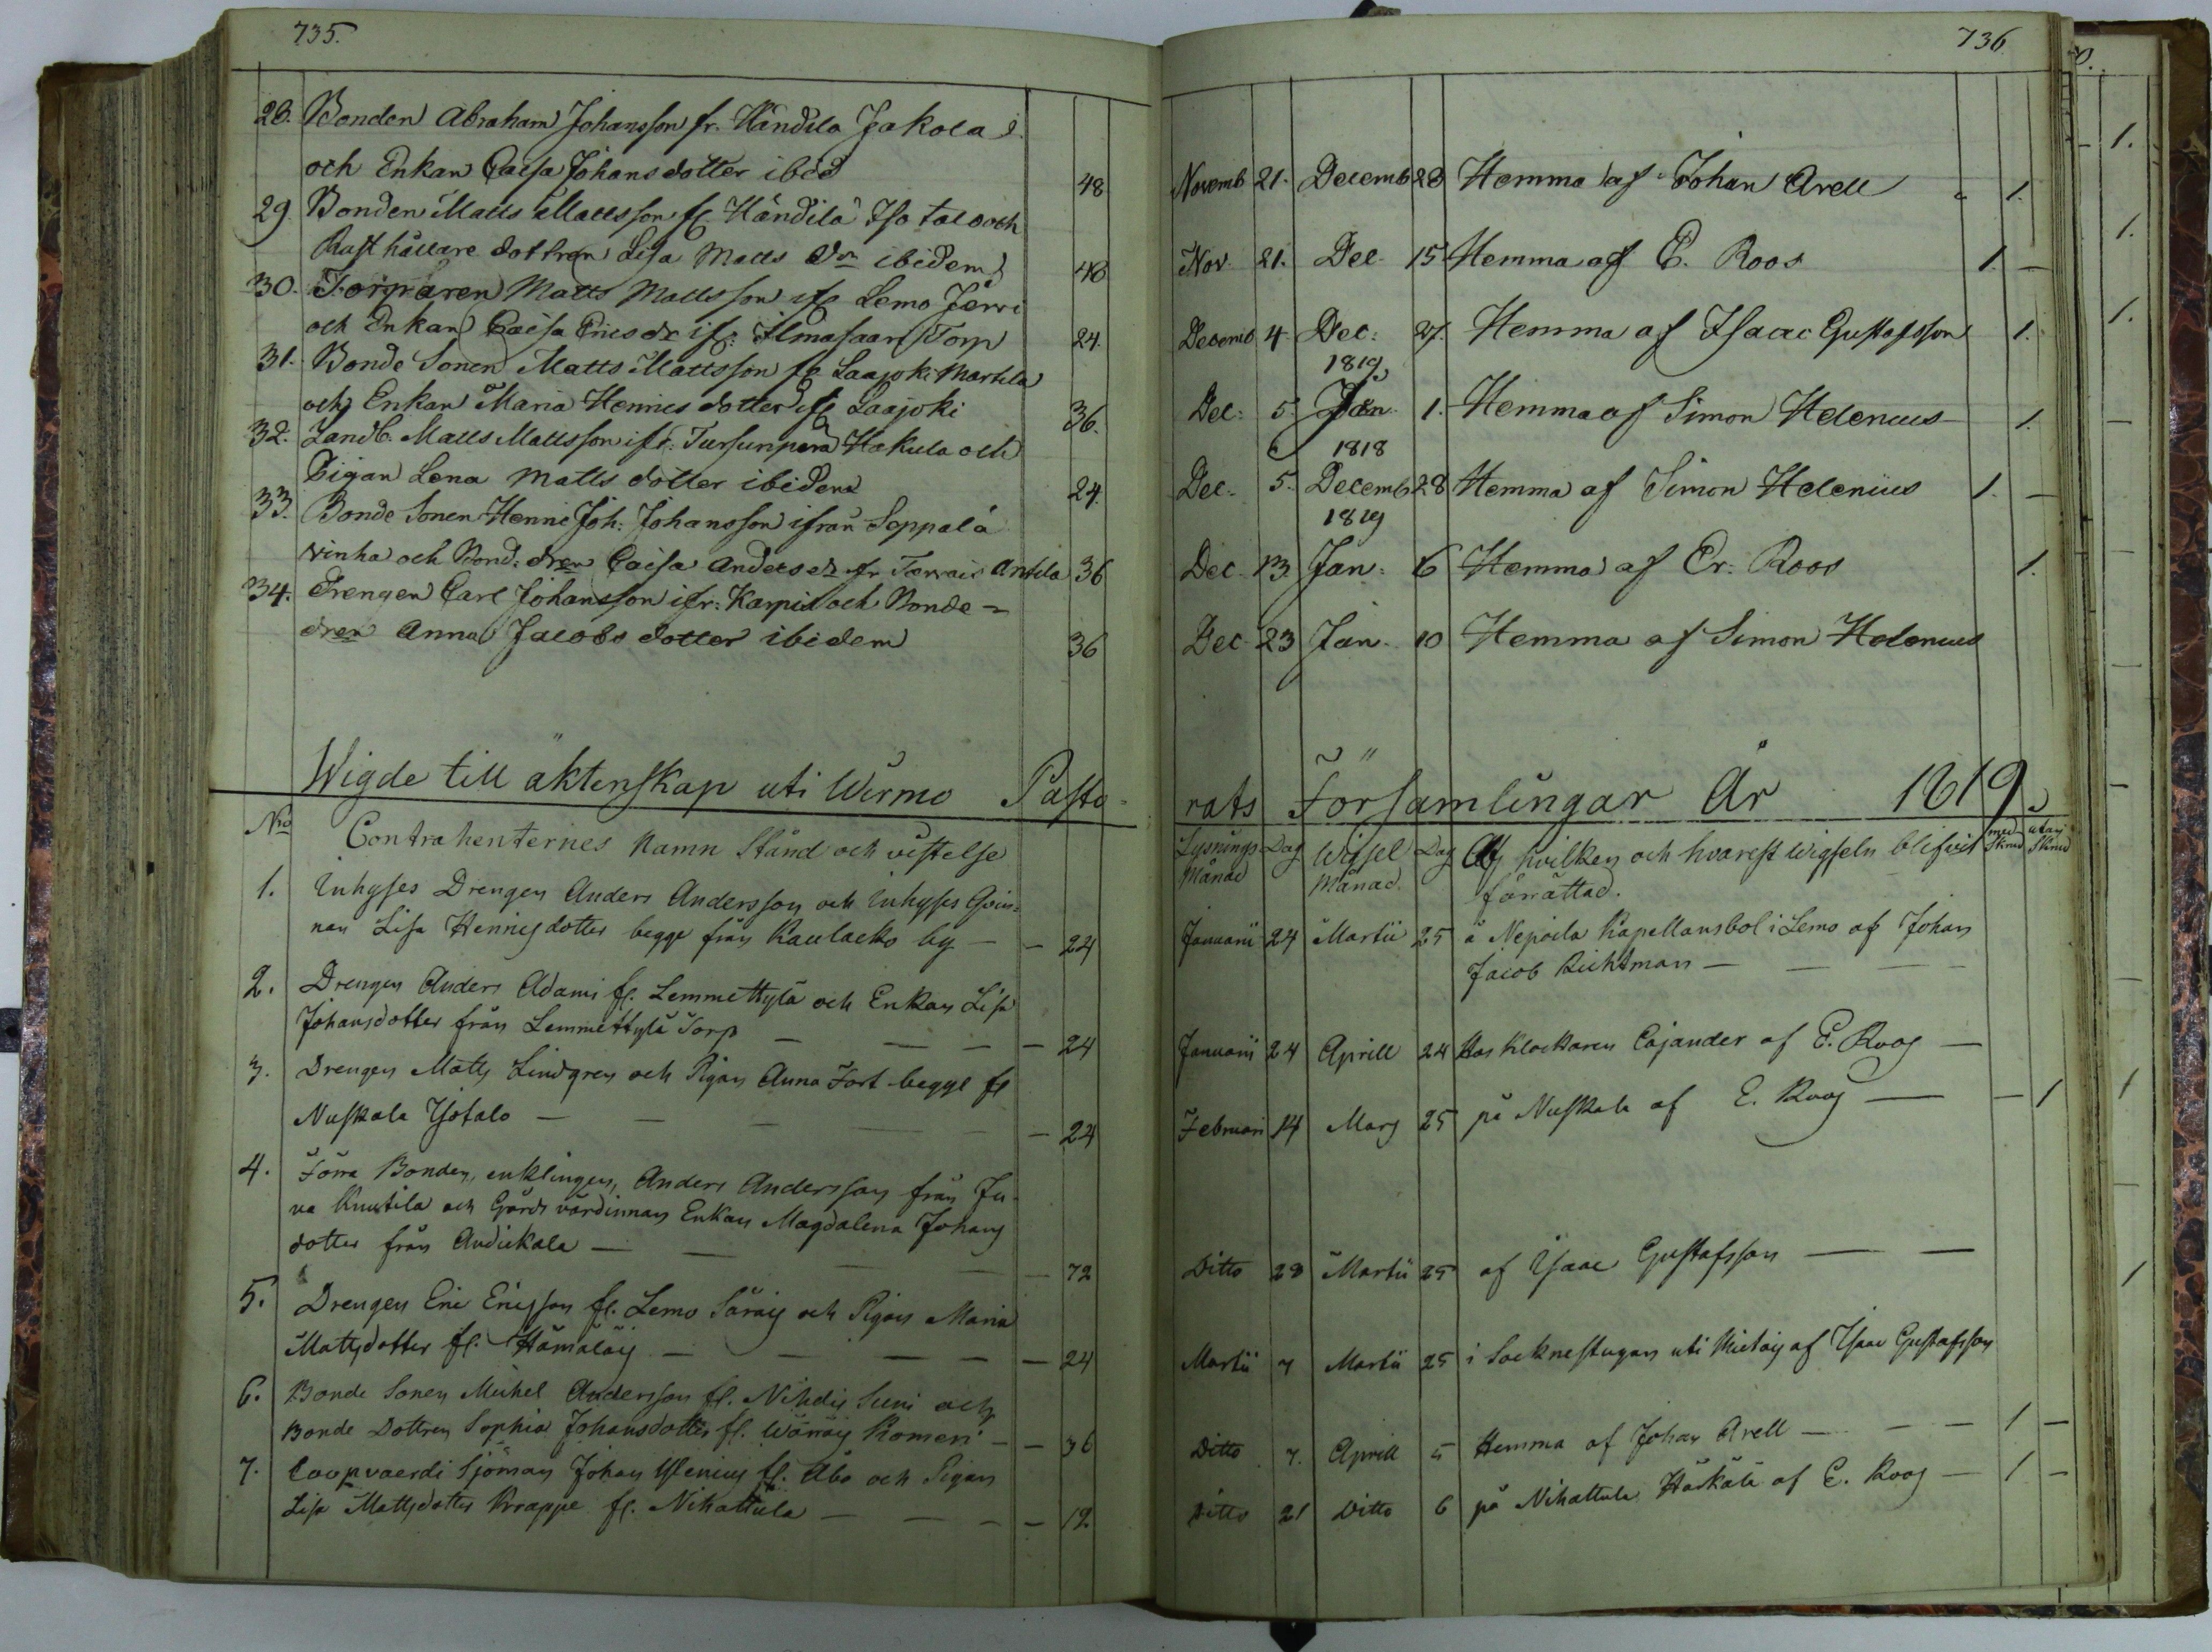 735.
28. Bonden Abraham Johansson fr. Händilä Jakola
och Enkan Caisa Johansdotter ibid 48
29. Bonden Matts Mattsson fr. Händilä Iso talo och
Rusthållare dottren Lisa Matts dr. ibidem 48
30. Torparen Matts Mattsson ifr. Lemo Järvi
och Enkan Caisa Ericsdr ifr. Ilmasaari Torp 24.
31. Bonde Sonen Matts Mattsson fr. Laajoki Marttila
och Enkan Maria Hennics dotter ifr Laajoki 36.
32. Landb. Matts Mattsson ifr. Tursunperä Hakula och
Pigan Lena Matts dotter ibidem 24.
33. Bonde Sonen Henric Joh: Johansson ifrån Seppälä
vinha och Bond: dren Caisa Anders dr fr Tarvais Antila 36
34. Drengen Carl Johansson ifr: Karpis och Bonde-
dren Anna Jacobs dotter ibidem 36
Wigde till äktenskap uti Wirmo Pasto-
No Contrahenternes Namn Stånd och vistelse
1. Inhyses Drengen Anders Andersson och Inhyses Qvin-
nan Lisa Hennigsdotter begge från Kaulacko by — — 24
2. Drengen Anders Adami fr. Lemmettylä och Enkan Lisa
Johansdotter från Lemmettylä Torp — — — — 24
3. Drengen Matts Lindgren och Pigan Anna Fort begge fr
Nuskala Ysotalo — — — — — 24
4. Förra Bonden, enklingen, Anders Andersson från Ju-
va Knutila och Gårds värdinnan Enkan Magdalena Johans
dotter från Audickala — — — — — 72
5. Drengen Eric Ericsson fr. Lemo Säräis och Pigan Maria
Mattsdotter fr. Hämäläis — — — — — 24
6. Bonde Sonen Michel Andersson fr. Nihdis Suni och
Bonde Dottren Sophia Johansdotter fr. Wäräis Komeri — — 36
7. Coopvaerdi Sjöman Johan Ylenius fr. Åbo och Pigan
Lisa Mattsdotter Krappe fr. Nihattula — — — — 12
736
Novemb 21. Decemb 28 Hemma af Johan Arell 1.
Nov. 21. Dec. 15 Hemma af E. Roos 1. —
Decemb 4. Dec: 27. Hemma af Isaac Gustafsson 1.
1819
Dec: 5. Jan. 1. Hemma af Simon Helenius 1.
1818
Dec. 5. Decemb 28 Hemma af Simon Helenius 1. —
1819
Dec. 13. Jan. 6 Hemma af Er: Roos 1.
Dec. 23 Jan. 10 Hemma af Simon Helenius
rats Församlingar År 1819.
Lysnings Månad Dag Wigsel Månad. Dag Af hvilken och hvarest wigseln blifvit med Skrud utan Skrud
förrättad.
Januarii 24 Martii 25 å Nepoila Kapellansbol i Lemo af Johan
Jacob Lichtman — — —
Januarii 24 Aprill 24 Hos Klockaren Cajander af E. Roos —
Februari 14 Mars 25 på Nuskala af E. Roos — — 1
Ditto 28 Martii 25 af Isaac Gustafsson — —
Martii 7 Martii 25 i Socknestugan uti Mietois af Isaac Gustafsson
Ditto 7. Aprill 5 Hemma af Johan Arell — — — 1 —
Ditto 21 Ditto 6 på Nihattula Häkälä af E. Roos — 1 —